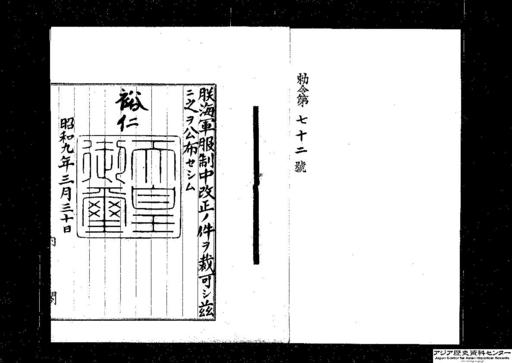 勅令第七十二號
朕海軍服制中改正ノ件ヲ裁可シ茲
ニ之ヲ公布セシム
裕仁
天皇御璽
昭和九年三月三十日
内閣
アジア歴史資料センター
Japan Center for Asian Historical Records